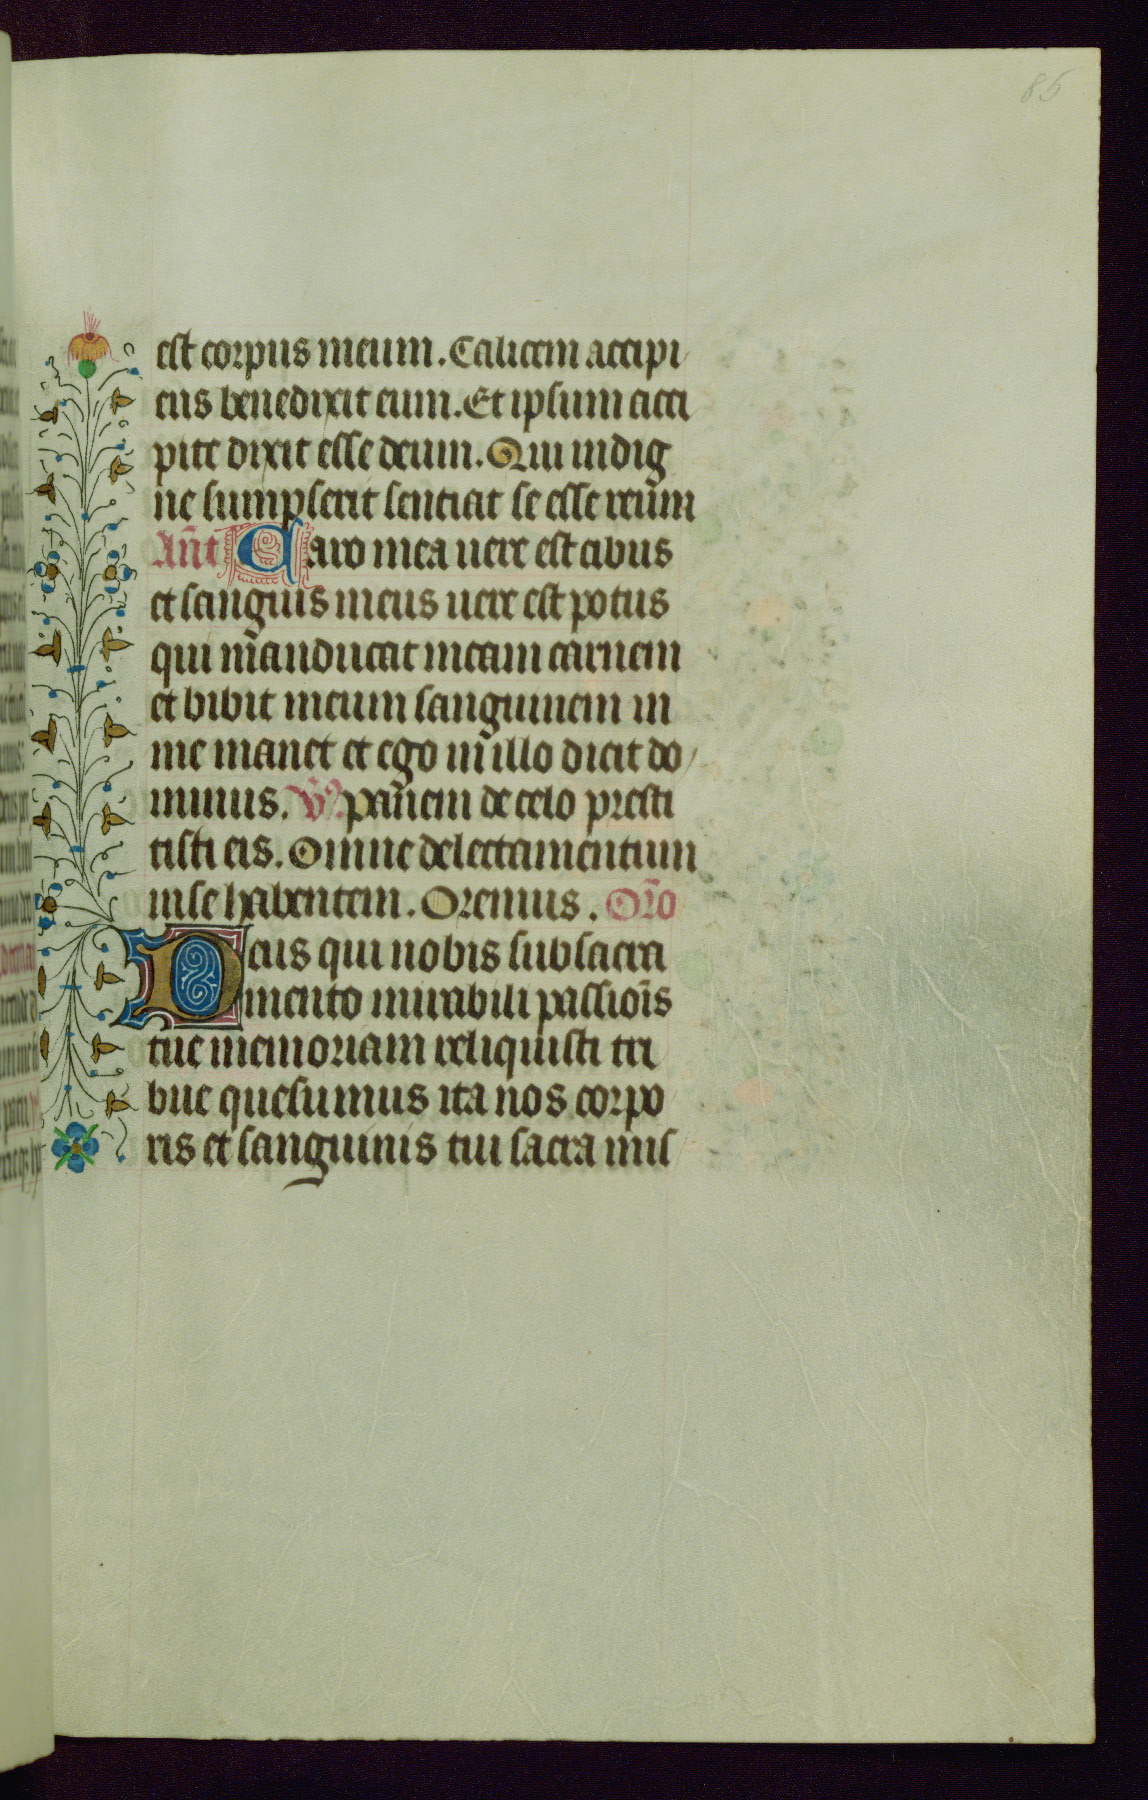 85
est corpus meum. Calicem accipi
ens benedixit eum. Et ipsum acci
pite dixit esse deum. Qui indig
ne sumpserit sentiat se esse reum̄
An̄t Caro mea uere est cibus
et sanguis meus uere est potus
qui m̄anducat meam carnem
et bibit meum sanguinem in
me manet et ego in̄ illo dicit do
minus. V̄s. pan̄em de celo presti
tisti eis. Omne delectamentum
in se habentem. Oremus. Or̄o
Deus qui nobis sub sacra
mento mirabili passiōis
tue memoriam reliquisti tri
bue quesumus ita nos corpo
ris et sanguinis tui sacra mis